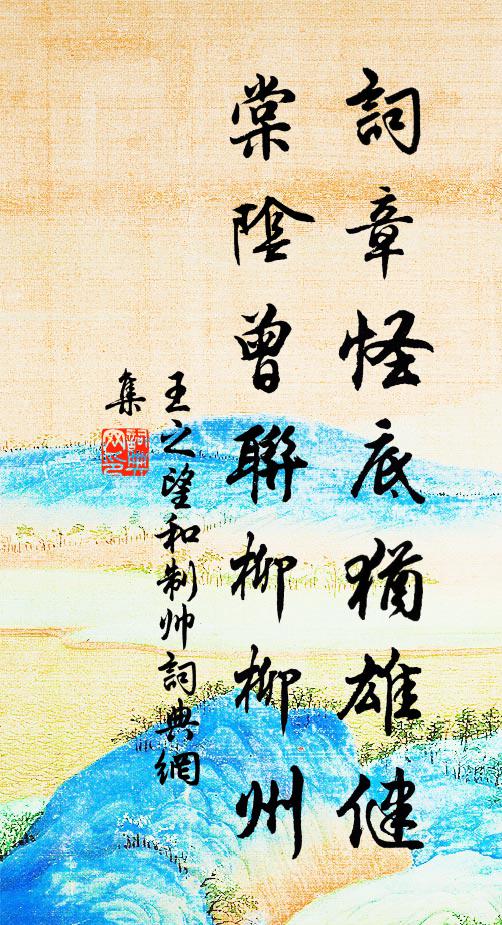 詞章怪底猶雄健
棠陰曾聯柳柳州
王之望和制帅詞典網
集